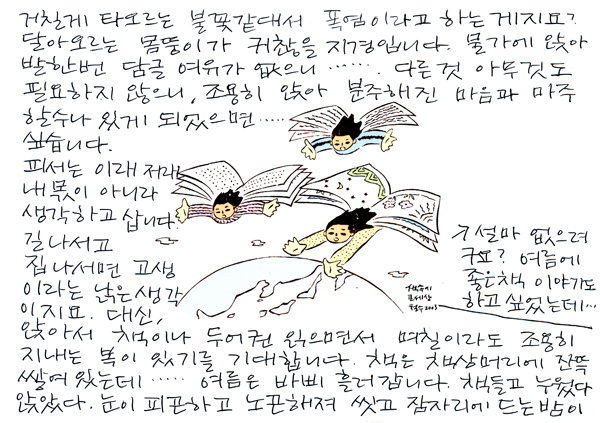 거칠게 타오르는 불꽃같대서 폭염이라고 하는게지요?
달아오르는 몸뚱이가 귀찮을 지경입니다. 물가에 앉아
발한번 담글 여유가 없으니 ……. 다른것 아무것도
필요하지 않으니, 조용히 앉아 분주해진 마음과 마주
할수나 있게 되었으면……
싶습니다.
피서는 이래저래
내 몫이 아니라
생각하고 삽니다.
길나서고
집나서면 고생
이라는 낡은생각
이지요. 대신,
앉아서 책이나 두어권 읽으면서 며칠이라도 조용히
지내는 복이 있기를 기대합니다. 책은 책상머리에 잔뜩
쌓여 있는데 …… 여름은 바삐 흘러갑니다. 책들고 누웠다
앉았다. 눈이 피곤하고 노곤해져 씻고 잠자리에 드는밤이
설마 없으려
구요? 여름에
좋은책 이야기도
하고 싶었는데…
2003